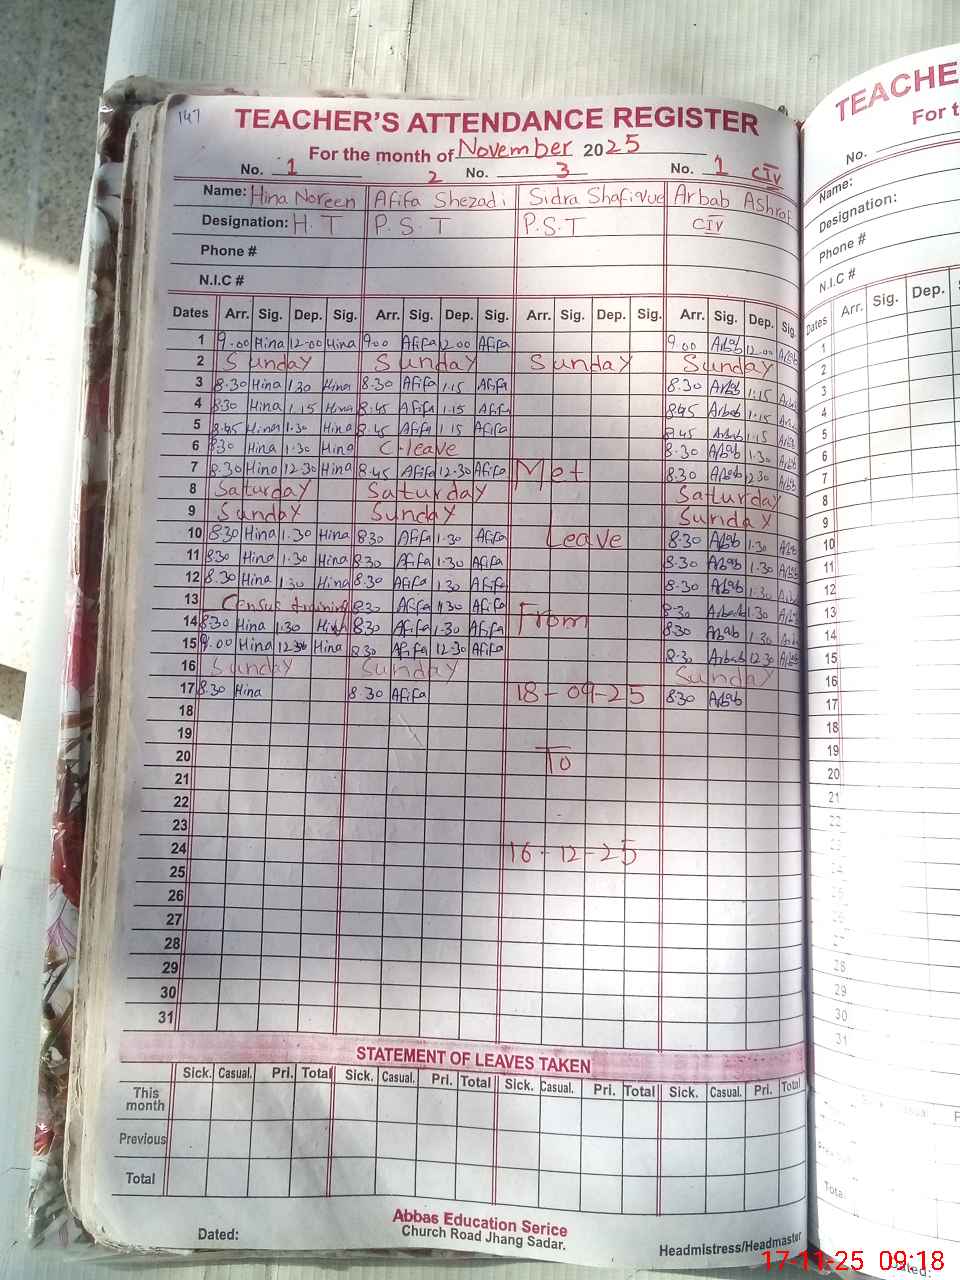 147
TEACHER'S ATTENDANCE REGISTER
For the month of November 2025
No. 1 2 No. 3 No. 1 CIV
Name: Hina Noreen Afifa Shezadi Sidra Shafique Arbab Ashraf
Designation: H.T P.S.T P.S.T CIV
Phone #
N.I.C #
Dates Arr. Sig. Dep. Sig. Arr. Sig. Dep. Sig. Arr. Sig. Dep. Sig. Arr. Sig. Dep. Sig.
1 9.00 Hina 12.00 Hina 9.00 Afifa 12.00 Afifa 9.00 Arbab 12.00 Arbab
2 Sunday Sunday Sunday Sunday
3 8.30 Hina 1.30 Hina 8.30 Afifa 1.15 Afifa 8.30 Arbab 1.15 Arbab
4 8.30 Hina 1.15 Hina 8.45 Afifa 1.15 Afifa 8.45 Arbab 1.15 Arbab
5 8.45 Hina 1.30 Hina 8.45 Afifa 1.15 Afifa 8.45 Arbab 1.15 Arbab
6 8.30 Hina 1.30 Hina C-leave 8.30 Arbab 1.30 Arbab
7 8.30 Hina 12.30 Hina 8.45 Afifa 12.30 Afifa Met 8.30 Arbab 12.30 Arbab
8 Saturday Saturday Saturday
9 Sunday Sunday Sunday
10 8.30 Hina 1.30 Hina 8.30 Afifa 1.30 Afifa Leave 8.30 Arbab 1.30 Arbab
11 8.30 Hina 1.30 Hina 8.30 Afifa 1.30 Afifa 8.30 Arbab 1.30 Arbab
12 8.30 Hina 1.30 Hina 8.30 Afifa 1.30 Afifa 8.30 Arbab 1.30 Arbab
13 Census training 8.30 Afifa 1.30 Afifa From 8.30 Arbab 1.30 Arbab
14 8.30 Hina 1.30 Hina 8.30 Afifa 1.30 Afifa 8.30 Arbab 1.30 Arbab
15 9.00 Hina 12.30 Hina 8.30 Afifa 12.30 Afifa 8.30 Arbab 12.30 Arbab
16 Sunday Sunday Sunday
17 8.30 Hina 8.30 Afifa 18-09-25 8.30 Arbab
18
19
20 To
21
22
23
24 16-12-25
25
26
27
28
29
30
31
STATEMENT OF LEAVES TAKEN
Sick. Casual. Pri. Total Sick. Casual. Pri. Total Sick. Casual. Pri. Total Sick. Casual. Pri. Total
This month
Previous
Total
Abbas Education Serice
Church Road Jhang Sadar.
Dated: Headmistress/Headmaster
TEACHE
For t
No.
Name:
Designation:
Phone #
N.I.C #
Dates Arr. Sig. Dep. S
1
2
3
4
5
6
7
8
9
10
11
12
13
14
15
16
17
18
19
20
21
22
28
29
30
31
17-11-25 09:18